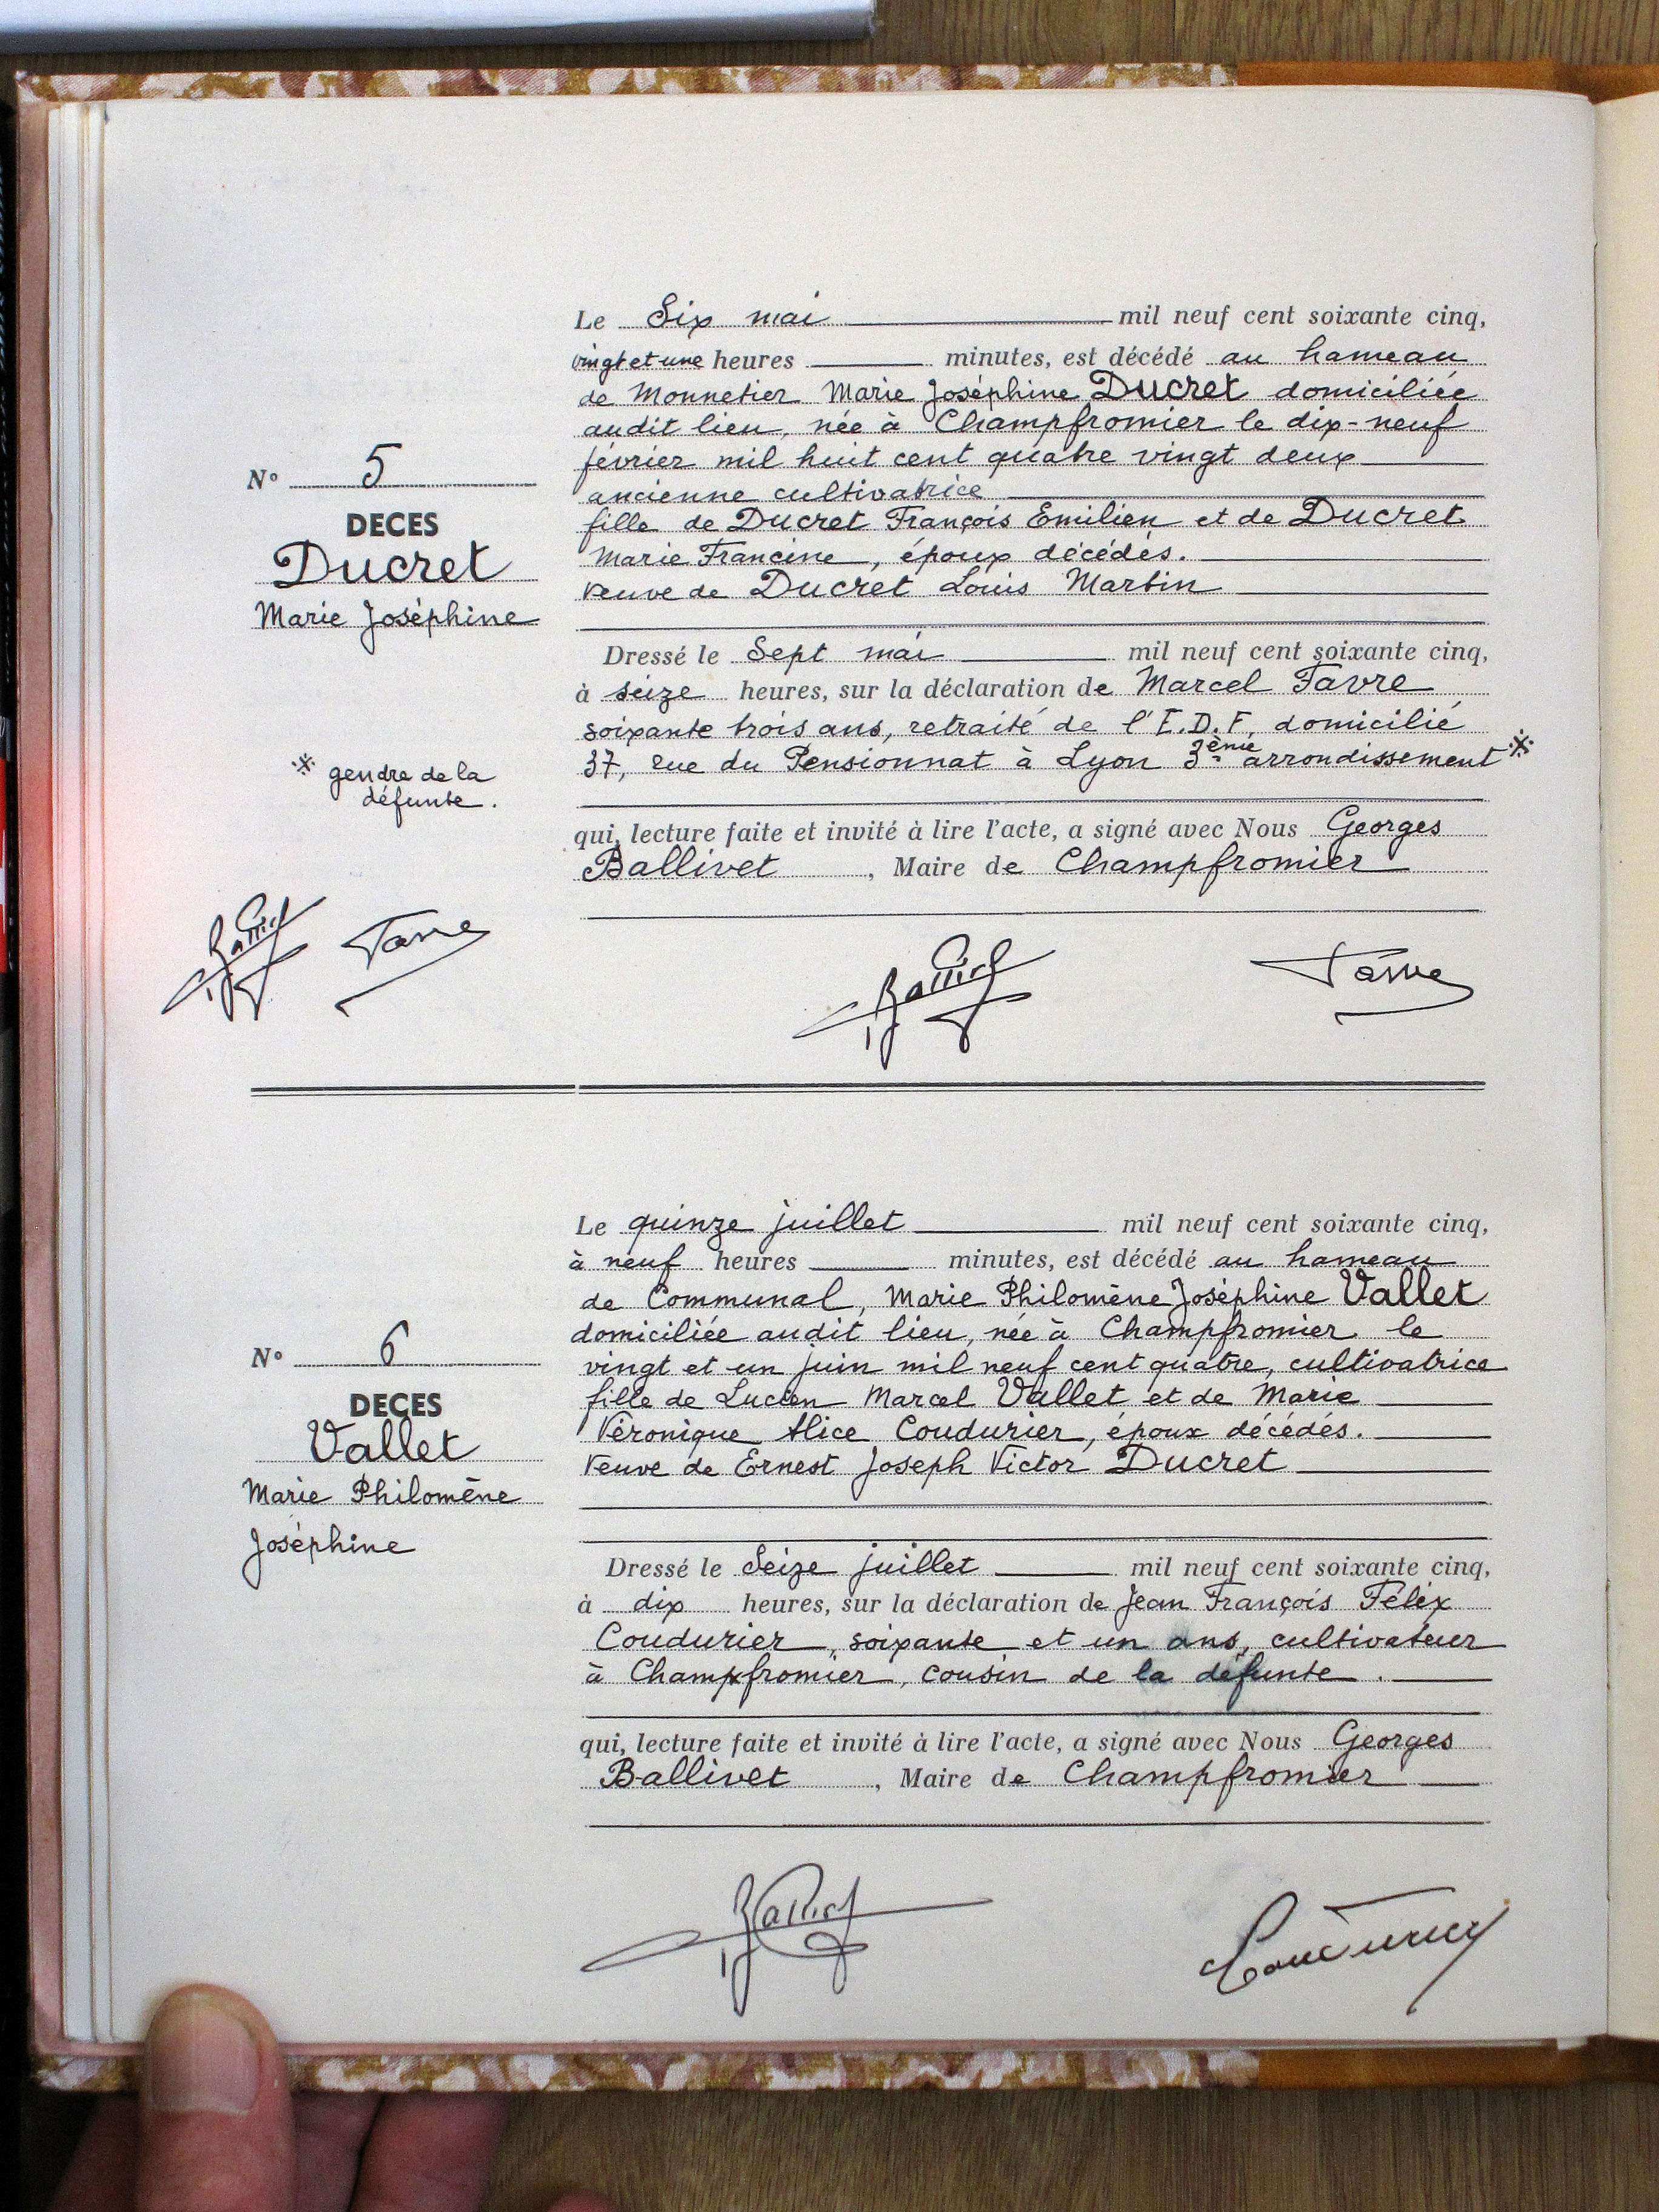 Le Six mai mil neuf cent soixante cinq,
vingt et une heures minutes, est décédé au hameau
de Monnetier Marie Joséphine Ducret domiciliée
audit lieu, née à Champfromier le dix-neuf
février mil huit cent quatre vingt deux
ancienne cultivatrice
fille de Ducret François Emilien et de Ducret
Marie Francine, époux décédés.
veuve de Ducret Louis Martin
N° 5
DECES
Ducret
Marie Joséphine
Dressé le Sept mai mil neuf cent soixante cinq,
à seize heures, sur la déclaration de Marcel Favre
soixante trois ans, retraité de l'E.D.F, domicilié
37, rue du Pensionnat à Lyon 3ème arrondissement ※
※ gendre de la
défunte.
qui, lecture faite et invité à lire l'acte, a signé avec Nous Georges
Ballivet, Maire de Champfromier
Ballivet Favre
Ballivet Favre
Le quinze juillet mil neuf cent soixante cinq,
à neuf heures minutes, est décédé au hameau
de Communal, Marie Philomène Joséphine Vallet
domiciliée audit lieu, née à Champfromier le
vingt et un juin mil neuf cent quatre, cultivatrice
fille de Lucien Marcel Vallet et de Marie
Véronique Alice Coudurier, époux décédés.
Veuve de Ernest Joseph Victor Ducret
N° 6
DECES
Vallet
Marie Philomène
Joséphine
Dressé le Seize juillet mil neuf cent soixante cinq,
à dix heures, sur la déclaration de Jean François Félix
Coudurier, soixante et un ans, cultivateur
à Champfromier, cousin de la défunte.
qui, lecture faite et invité à lire l'acte, a signé avec Nous Georges
Ballivet, Maire de Champfromier
Ballivet Coudurier